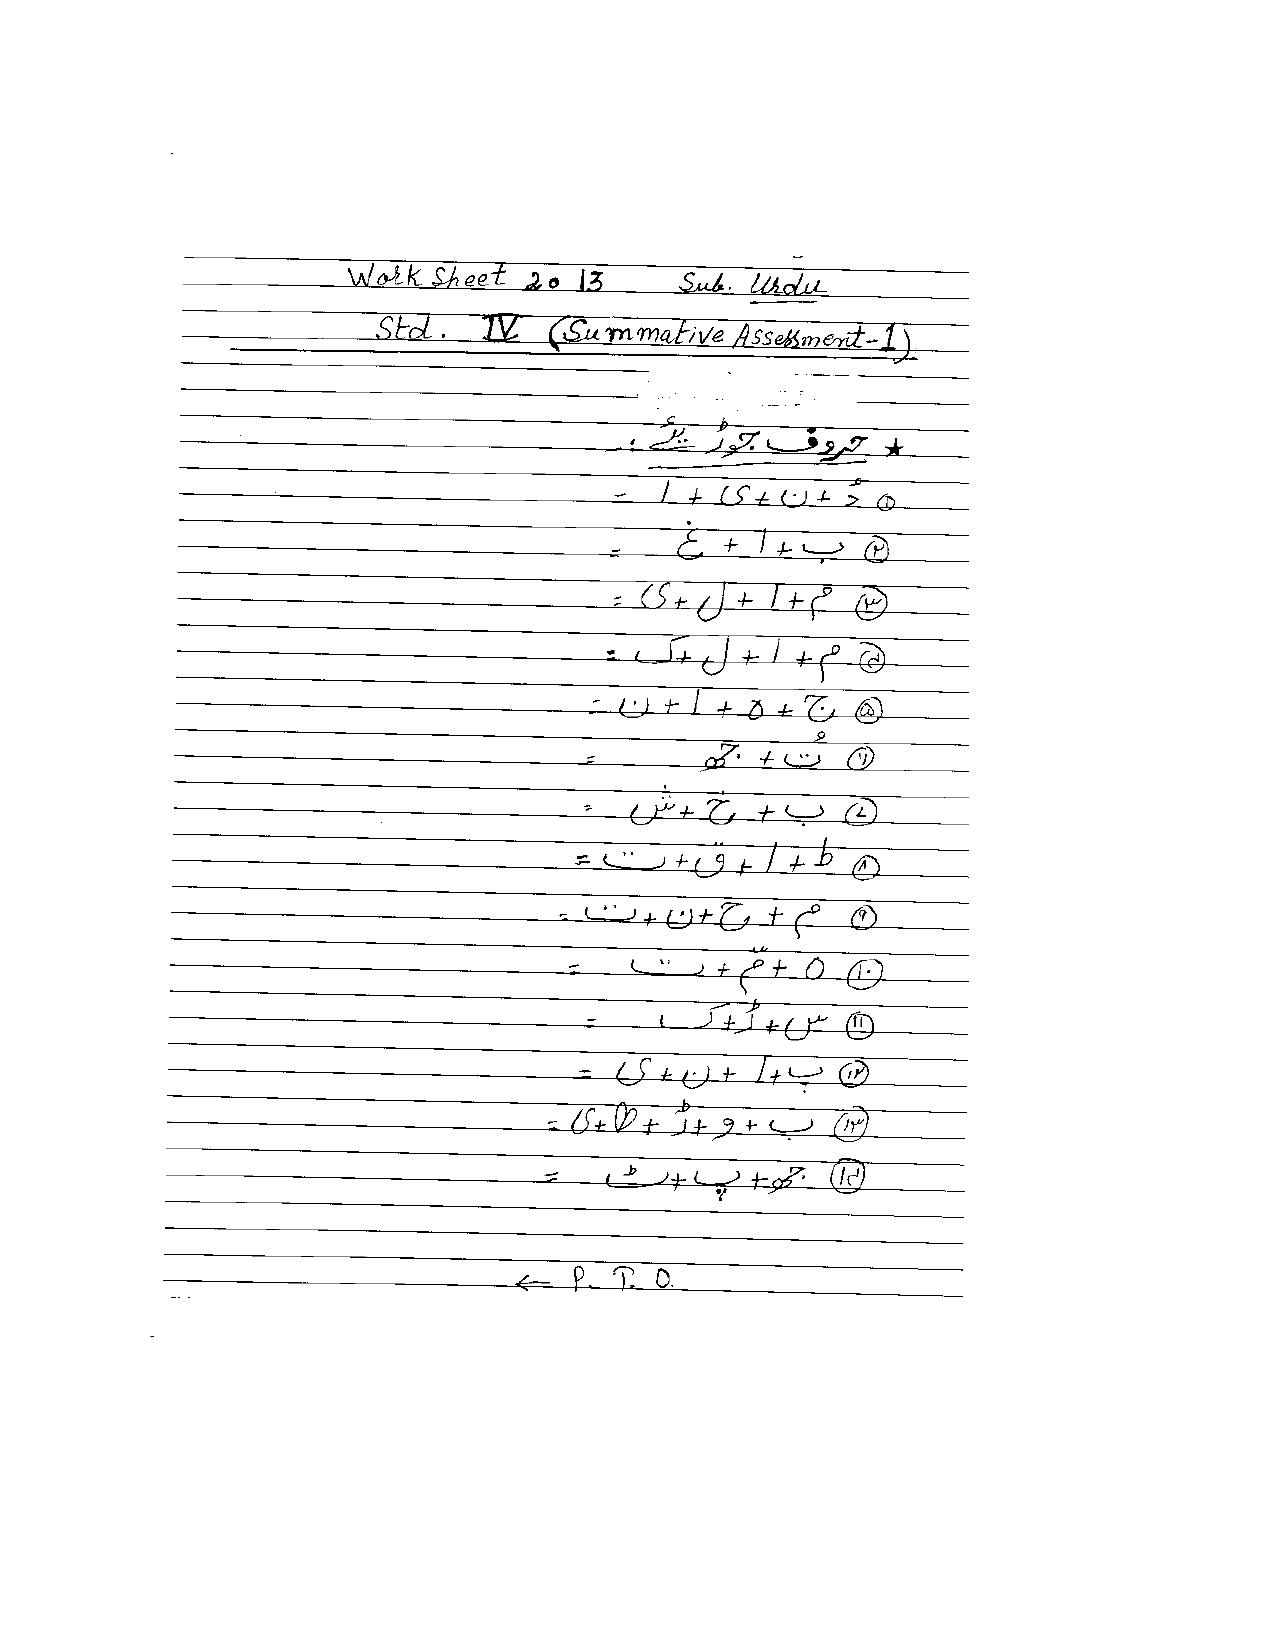 Work Sheet 2013 Sub. Urdu
Std. IV (Summative Assessment-1)
★ حروف جوڑیئے :
① دُ + ن + ی + ا =
② ب + ا + غ =
③ م + ا + ل + ی =
④ م + ا + ل + ک =
⑤ ج + ہ + ا + ن =
⑥ تُ + جھ =
⑦ ب + خ + ش =
⑧ ط + ا + ق + ت =
⑨ م + ح + ن + ت =
⑩ ہ + مّ + ت =
⑪ س + ڑ + ک =
⑫ پ + ا + ن + ی =
⑬ ب + و + ڑ + ھ + ی =
⑭ جھ + پ + ٹ =
← P. T. O.